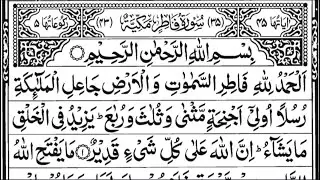 اٰیَاتُهَا ۴۵ (۳۵) سُوْرَةُ فَاطِرٍ مَّكِّيَّةٌ (۴۳) رُكُوْعَاتُهَا ۵
بِسْمِ اللّٰهِ الرَّحْمٰنِ الرَّحِيْمِ
اَلْحَمْدُ لِلّٰهِ فَاطِرِ السَّمٰوٰتِ وَالْاَرْضِ جَاعِلِ الْمَلٰٓئِكَةِ
رُسُلًا اُولِیْٓ اَجْنِحَةٍ مَّثْنٰی وَثُلٰثَ وَرُبٰعَ ؕ یَزِیْدُ فِی الْخَلْقِ
مَا یَشَآءُ ؕ اِنَّ اللّٰهَ عَلٰی كُلِّ شَیْءٍ قَدِیْرٌ ۝۱ مَا یَفْتَحِ اللّٰهُ